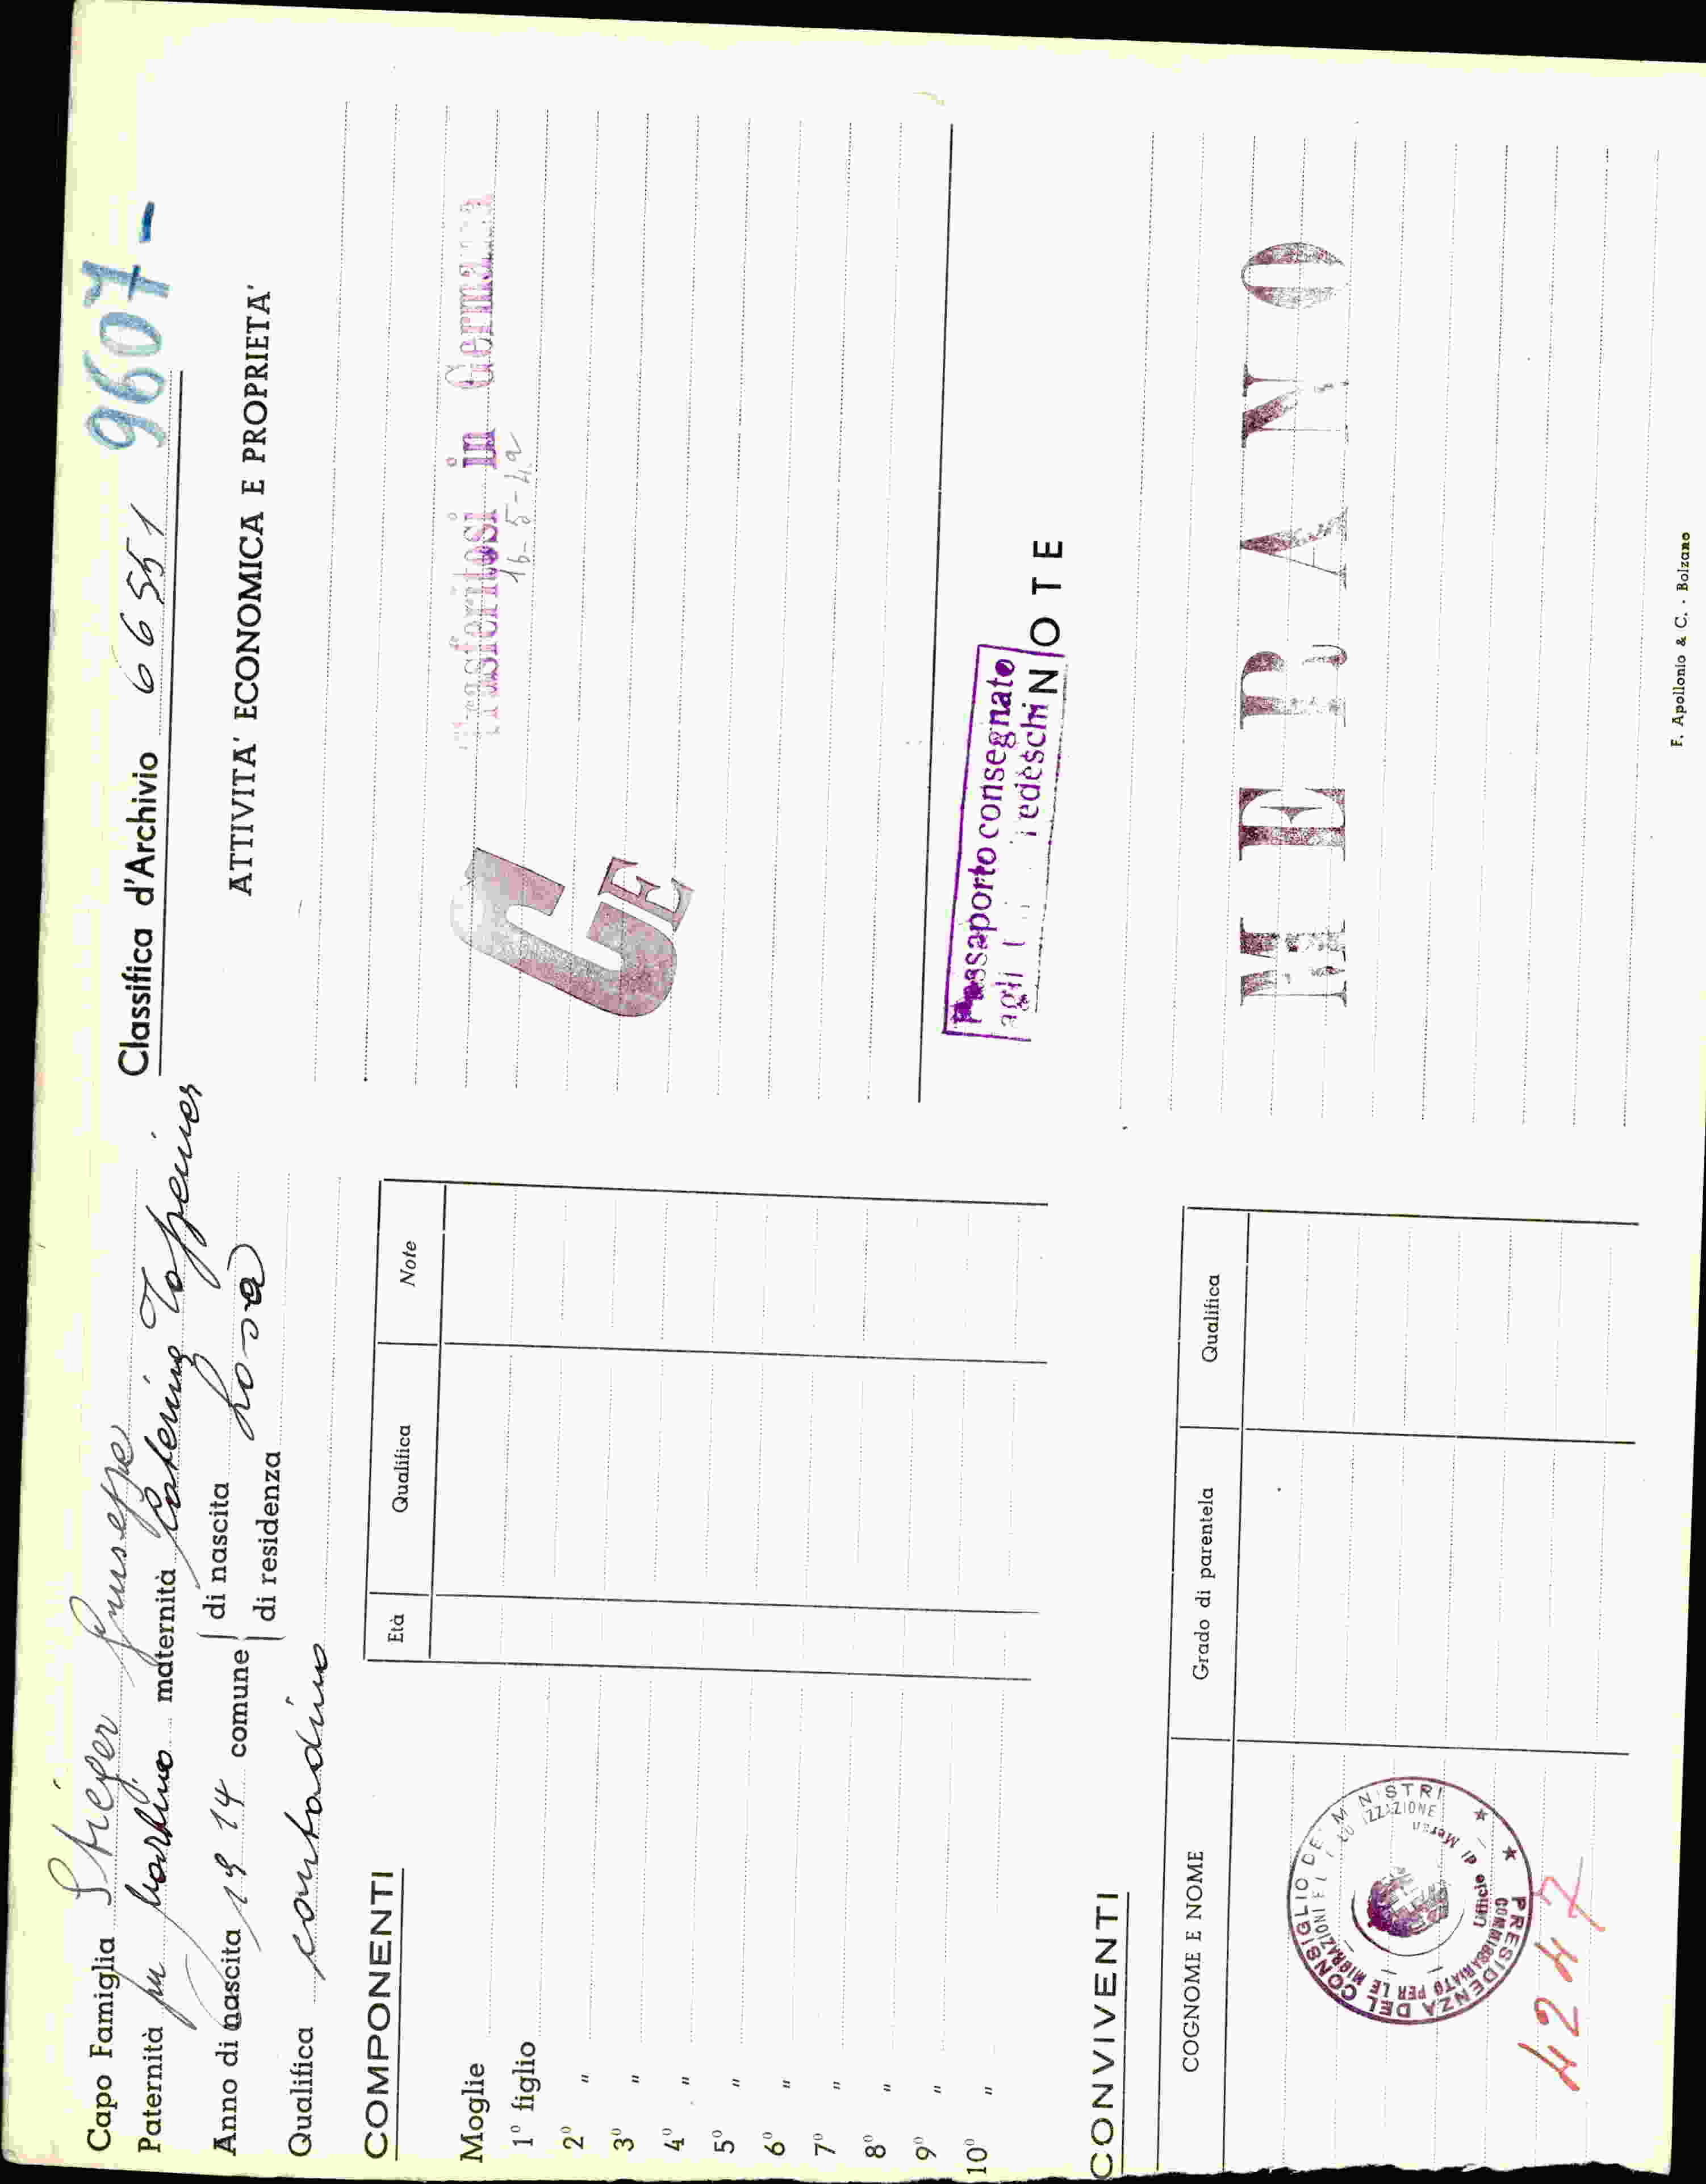 Capo Famiglia Strieger Giuseppe
Paternità fu Martino maternità Caterina
Anno di nascita 1914 comune
di nascita
di residenza
Qualifica contadino
Classifica d'Archivio 66551 9607-
ATTIVITA' ECONOMICA E PROPRIETA'
Trasferitosi in Germania
16-5-42
GE
COMPONENTI
Età Qualifica Note
Moglie
1º figlio
2º "
3º "
4º "
5º "
6º "
7º "
8º "
9º "
10º "
Passaporto consegnato
agli Tedeschi
NOTE
MERANO
CONVIVENTI
COGNOME E NOME Grado di parentela Qualifica
PRESIDENZA DEL CONSIGLIO DEI MINISTRI
COMMISSARIATO PER LE MIGRAZIONI E LA COLONIZZAZIONE
Ufficio di Merano
4247
F. Apollonio & C. - Bolzano